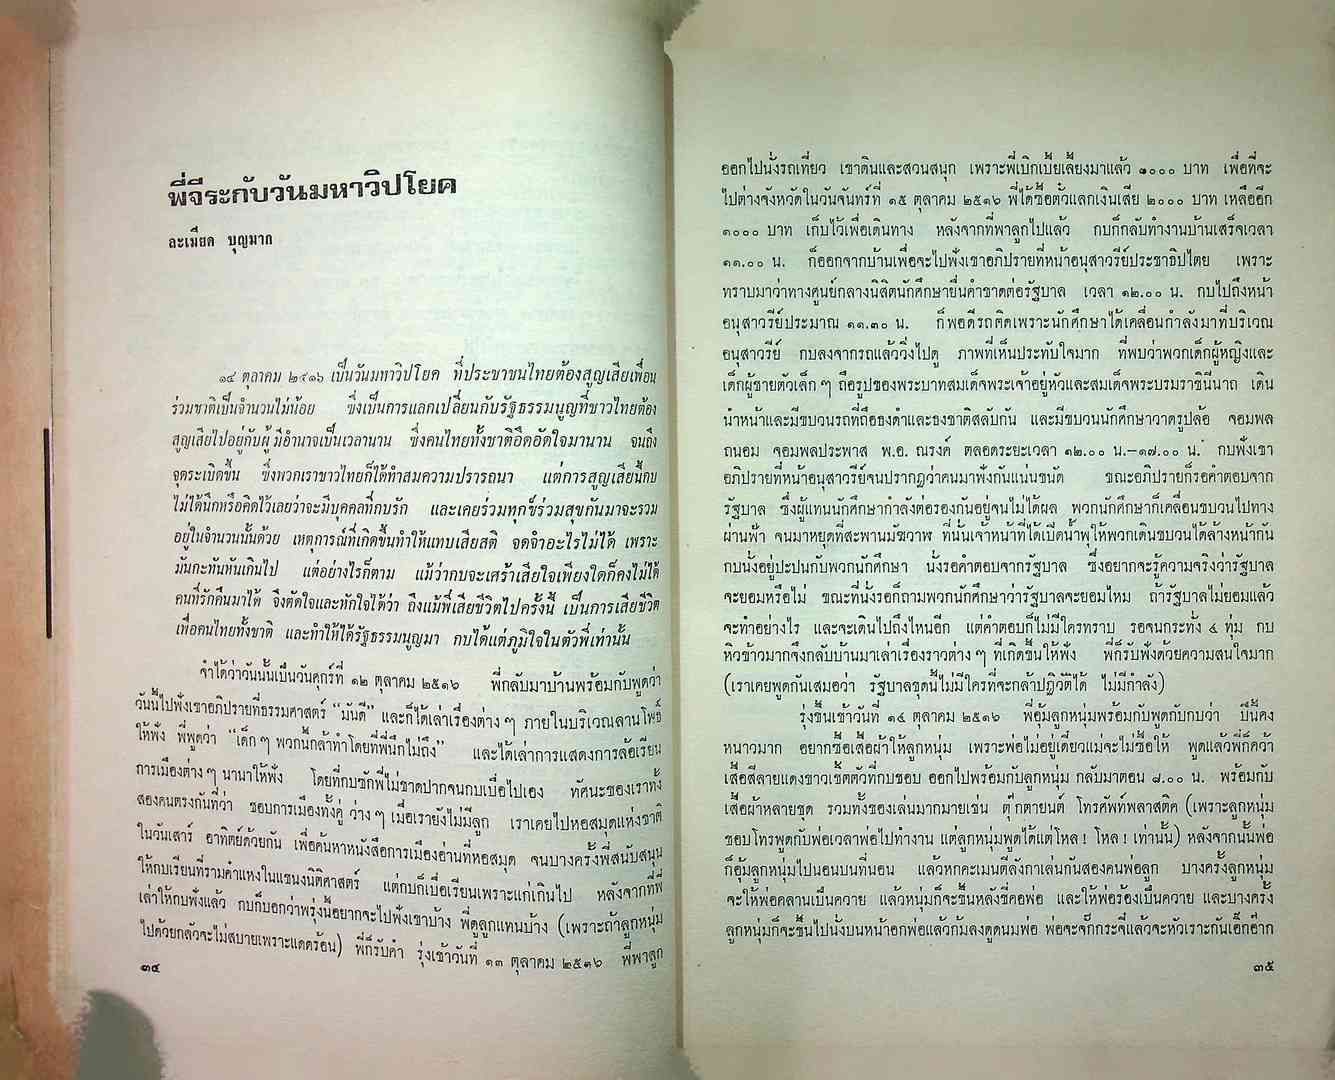 พี่จีระกับวันมหาวิปโยค
ละเมียด บุญมาก
๑๔ ตุลาคม ๒๕๑๖ เป็นวันมหาวิปโยค ที่ประชาชนไทยต้องสูญเสียเพื่อน
ร่วมชาติเป็นจำนวนไม่น้อย ซึ่งเป็นการแลกเปลี่ยนกับรัฐธรรมนูญที่ชาวไทยต้อง
สูญเสียไปอยู่กับผู้มีอำนาจเป็นเวลานาน ซึ่งคนไทยทั้งชาติอึดอัดใจมานาน จนถึง
จุดระเบิดขึ้น ซึ่งพวกเราชาวไทยก็ได้ทำสมความปรารถนา แต่การสูญเสียนี้กบ
ไม่ได้นึกหรือคิดไว้เลยว่าจะมีบุคคลที่กบรัก และเคยร่วมทุกข์ร่วมสุขกันมาจะรวม
อยู่ในจำนวนนั้นด้วย เหตุการณ์ที่เกิดขึ้นทำให้แทบเสียสติ จดจำอะไรไม่ได้ เพราะ
มันกะทันหันเกินไป แต่อย่างไรก็ตาม แม้ว่ากบจะเศร้าเสียใจเพียงใดก็คงไม่ได้
คนที่รักคืนมาได้ จึงตัดใจและหักใจได้ว่า ถึงแม้พี่เสียชีวิตไปครั้งนี้ เป็นการเสียชีวิต
เพื่อคนไทยทั้งชาติ และทำให้ได้รัฐธรรมนูญมา กบได้แต่ภูมิใจในตัวพี่เท่านั้น
จำได้ว่าวันนั้นเป็นวันศุกร์ที่ ๑๒ ตุลาคม ๒๕๑๖ พี่กลับมาบ้านพร้อมกับพูดว่า
วันนี้ไปฟังเขาอภิปรายที่ธรรมศาสตร์ “มันดี” และก็ได้เล่าเรื่องต่างๆ ภายในบริเวณลานโพธิ์
ให้ฟัง พี่พูดว่า “เด็กๆ พวกนี้กล้าทำโดยที่พี่นึกไม่ถึง” และได้เล่าการแสดงการล้อเรียน
การเมืองต่างๆ นานาให้ฟัง โดยที่กบซักพี่ไม่ขาดปากจนกบเบื่อไปเอง ทัศนะของเราทั้ง
สองคนตรงกันที่ว่า ชอบการเมืองทั้งคู่ ว่างๆ เมื่อเรายังไม่มีลูก เราเคยไปหอสมุดแห่งชาติ
ในวันเสาร์ อาทิตย์ด้วยกัน เพื่อค้นหาหนังสือการเมืองอ่านที่หอสมุด จนบางครั้งพี่สนับสนุน
ให้กบเรียนที่รามคำแหงในแขนงนิติศาสตร์ แต่กบก็เบื่อเรียนเพราะแก่เกินไป หลังจากที่พี่
เล่าให้กบฟังแล้ว กบก็บอกว่าพรุ่งนี้อยากจะไปฟังเขาบ้าง พี่ดูลูกแทนบ้าง (เพราะถ้าลูกหนุ่ม
ไปด้วยกลัวจะไม่สบายเพราะแดดร้อน) พี่ก็รับคำ รุ่งเช้าวันที่ ๑๓ ตุลาคม ๒๕๑๖ พี่พาลูก
๓๔
ออกไปนั่งรถเที่ยว เขาดินและสวนสนุก เพราะพี่เบิกเบี้ยเลี้ยงมาแล้ว ๑๐๐๐ บาท เพื่อที่จะ
ไปต่างจังหวัดในวันจันทร์ที่ ๑๕ ตุลาคม ๒๕๑๖ พี่ได้ซื้อตั๋วแลกเงินเสีย ๒๐๐๐ บาท เหลืออีก
๑๐๐๐ บาท เก็บไว้เพื่อเดินทาง หลังจากที่พาลูกไปแล้ว กบก็กลับทำงานบ้านเสร็จเวลา
๑๑.๐๐ น. ก็ออกจากบ้านเพื่อจะไปฟังเขาอภิปรายที่หน้าอนุสาวรีย์ประชาธิปไตย เพราะ
ทราบมาว่าทางศูนย์กลางนิสิตนักศึกษายื่นคำขาดต่อรัฐบาล เวลา ๑๒.๐๐ น. กบไปถึงหน้า
อนุสาวรีย์ประมาณ ๑๑.๓๐ น. ก็พอดีรถติดเพราะนักศึกษาได้เคลื่อนกำลังมาที่บริเวณ
อนุสาวรีย์ กบลงจากรถแล้ววิ่งไปดู ภาพที่เห็นประทับใจมาก ที่พบว่าพวกเด็กผู้หญิงและ
เด็กผู้ชายตัวเล็กๆ ถือรูปของพระบาทสมเด็จพระเจ้าอยู่หัวและสมเด็จพระบรมราชินีนาถ เดิน
นำหน้าและมีขบวนรถที่ถือธงดำและธงชาติสลับกัน และมีขบวนนักศึกษาวาดรูปล้อ จอมพล
ถนอม จอมพลประพาส พ.อ. ณรงค์ ตลอดระยะเวลา ๑๒.๐๐ น.–๑๗.๐๐ น. กบฟังเขา
อภิปรายที่หน้าอนุสาวรีย์จนปรากฏว่าคนมาฟังกันแน่นขนัด ขณะอภิปรายก็รอคำตอบจาก
รัฐบาล ซึ่งผู้แทนนักศึกษากำลังต่อรองกันอยู่จนไม่ได้ผล พวกนักศึกษาก็เคลื่อนขบวนไปทาง
ผ่านฟ้า จนมาหยุดที่สะพานมัฆวาฬ ที่นั้นเจ้าหน้าที่ได้เปิดน้ำพุให้พวกเดินขบวนได้ล้างหน้ากัน
กบนั่งอยู่ปะปนกับพวกนักศึกษา นั่งรอคำตอบจากรัฐบาล ซึ่งอยากจะรู้ความจริงว่ารัฐบาล
จะยอมหรือไม่ ขณะที่นั่งรอก็ถามพวกนักศึกษาว่ารัฐบาลจะยอมไหม ถ้ารัฐบาลไม่ยอมแล้ว
จะทำอย่างไร และจะเดินไปถึงไหนอีก แต่คำตอบก็ไม่มีใครทราบ รอจนกระทั่ง ๔ ทุ่ม กบ
หิวข้าวมากจึงกลับบ้านมาเล่าเรื่องราวต่างๆ ที่เกิดขึ้นให้ฟัง พี่ก็รับฟังด้วยความสนใจมาก
(เราเคยพูดกันเสมอว่า รัฐบาลชุดนี้ไม่มีใครที่จะกล้าปฏิวัติได้ ไม่มีกำลัง)
รุ่งขึ้นเช้าวันที่ ๑๔ ตุลาคม ๒๕๑๖ พี่อุ้มลูกหนุ่มพร้อมกับพูดกับกบว่า ปีนี้คง
หนาวมาก อยากซื้อเสื้อผ้าให้ลูกหนุ่ม เพราะพ่อไม่อยู่เดี๋ยวแม่จะไม่ซื้อให้ พูดแล้วพี่ก็คว้า
เสื้อสีลายแดงขาวเชิ้ตตัวที่กบชอบ ออกไปพร้อมกับลูกหนุ่ม กลับมาตอน ๘.๐๐ น. พร้อมกับ
เสื้อผ้าหลายชุด รวมทั้งของเล่นมากมายเช่น ตุ๊กตายนต์ โทรศัพท์พลาสติค (เพราะลูกหนุ่ม
ชอบโทรพูดกับพ่อเวลาพ่อไปทำงาน แต่ลูกหนุ่มพูดได้แต่โหล ! โหล ! เท่านั้น) หลังจากนั้นพ่อ
ก็อุ้มลูกหนุ่มไปนอนบนที่นอน แล้วหกคะเมนตีลังกาเล่นกันสองคนพ่อลูก บางครั้งลูกหนุ่ม
จะให้พ่อคลานเป็นควาย แล้วหนุ่มก็จะขึ้นหลังขี่คอพ่อ และให้พ่อร้องเป็นควาย และบางครั้ง
ลูกหนุ่มก็จะขึ้นไปนั่งบนหน้าอกพ่อแล้วก้มลงดูดนมพ่อ พ่อจะจั๊กกระจี้แล้วจะหัวเราะกันเอิ๊กอ๊าก
๓๕